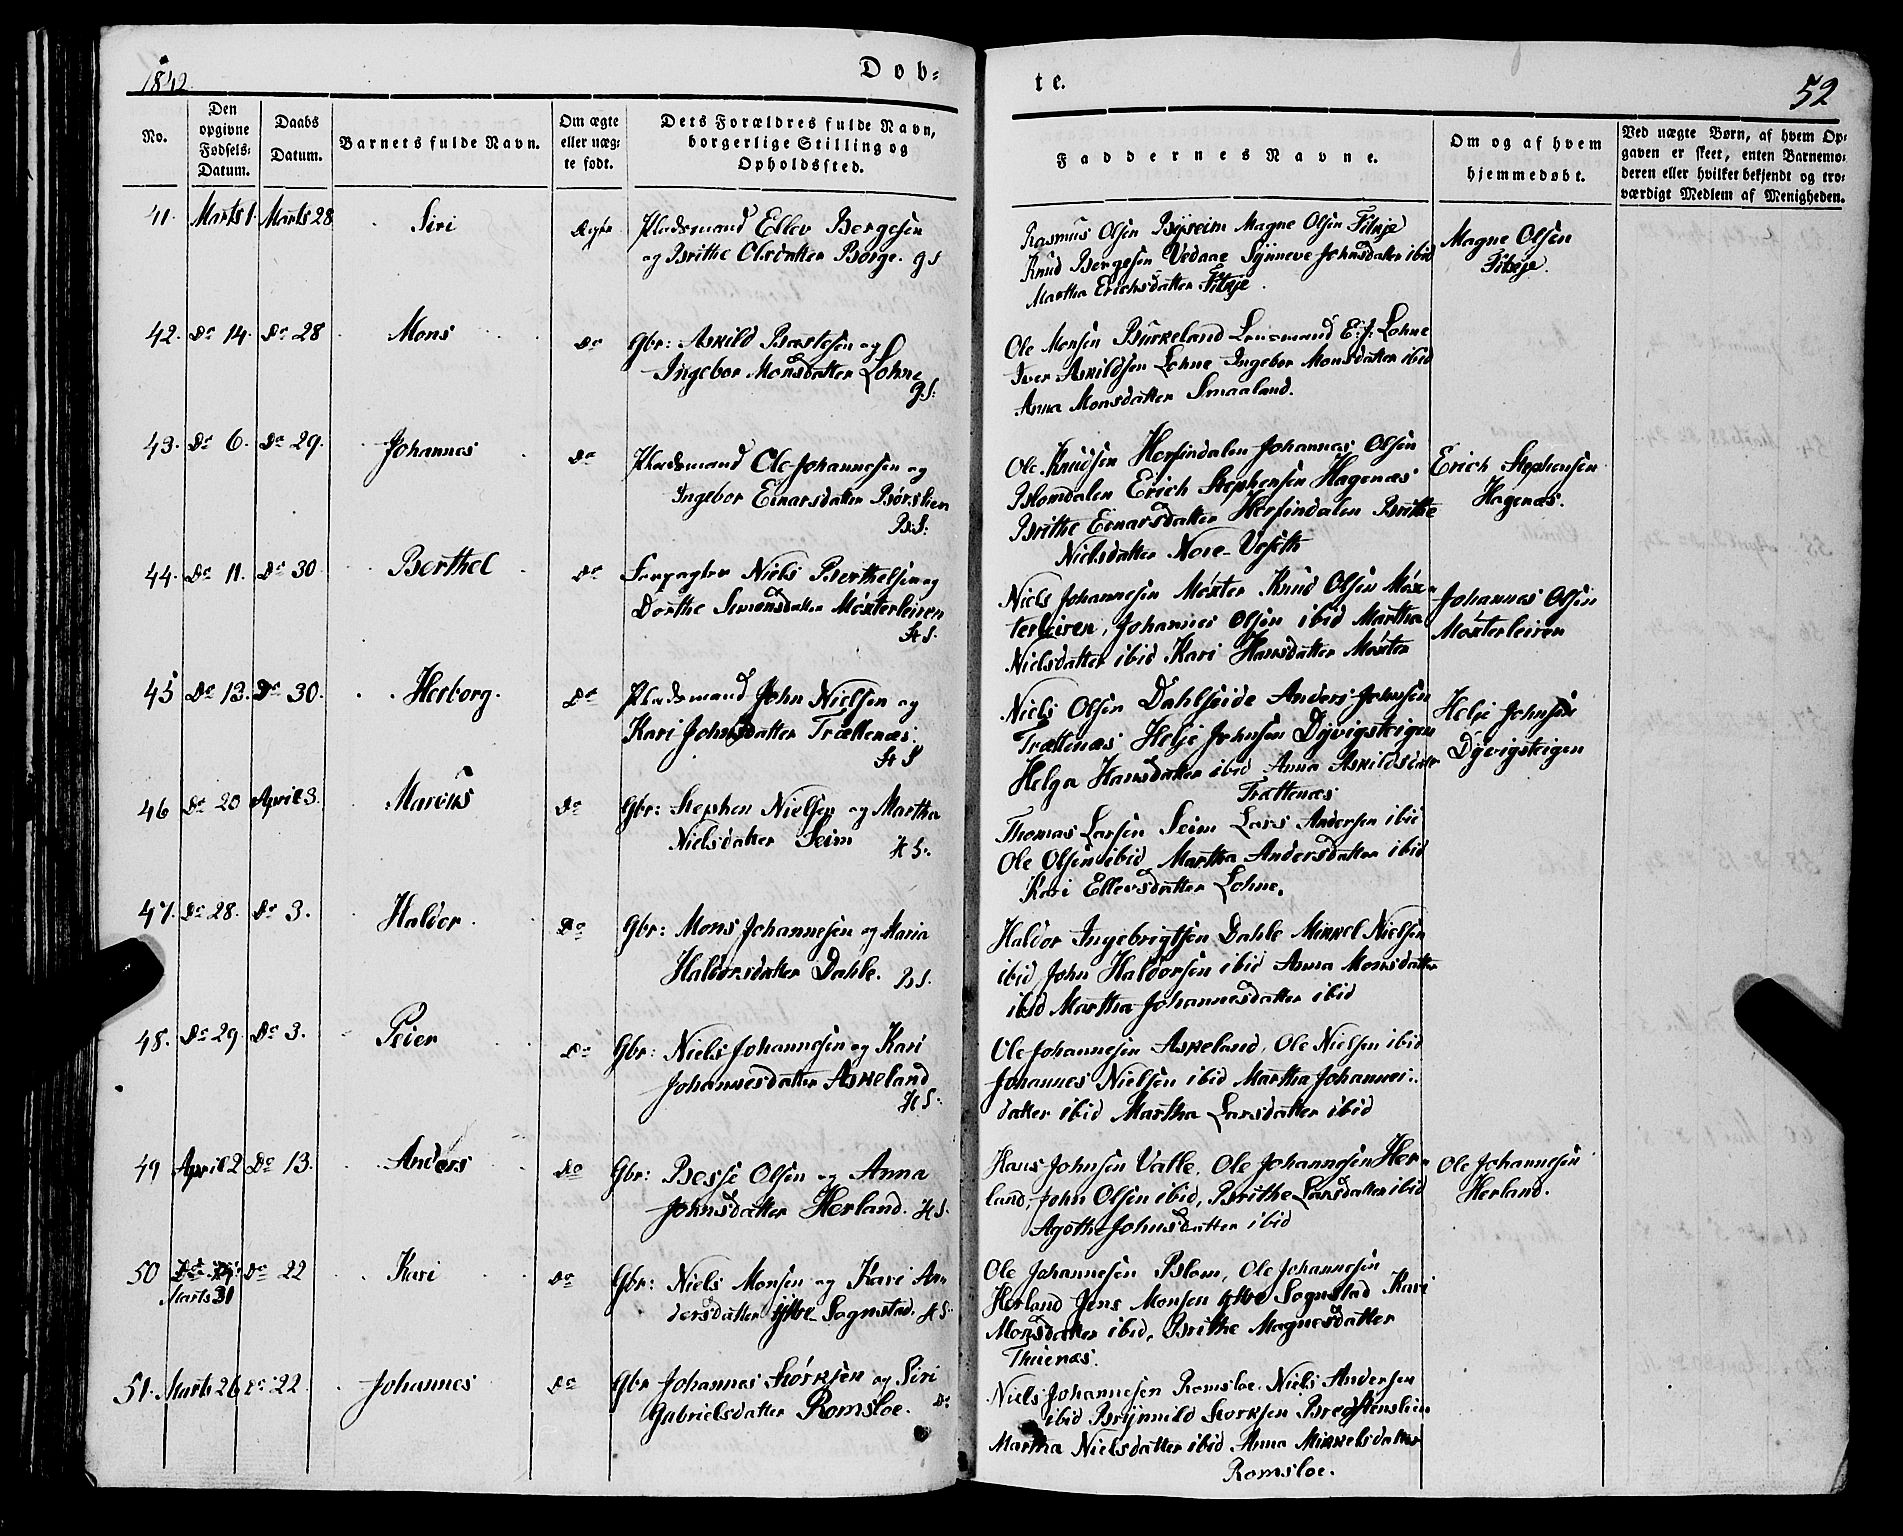 1842.
Døb-
te.
52
No.
Den opgivne Fødsels-Datum.
Daabs Datum.
Barnets fulde Navn.
Om ægte eller uæg-te født.
Dets Forældres fulde Navn, borgerlige Stilling og Opholdssted.
Faddernes Navne.
Om og af hvem hjemmedøbt.
Ved uægte Børn, af hvem Op-gaven er skeet, enten Barnemo-deren eller hvilket bekjendt og tro-værdigt Medlem af Menigheden.
41. Marts 1. Marts 28 Siri Ægte Pladsmand Ellev Bergesen
og Brithe Olsdatter Borge. HS
Rasmus Olsen Byseim Magne Olsen Fitsje
Knud Bergesen Vedaae Synneve Johnsdatter ibid
Martha Erichsdatter Fitsje.
Magne Olsen
Fitsje.
42. Do 14. Do 28 Mons Do Gbr: Askild Bastesen og
Ingebor Monsdatter Lohne
HS:
Ole Monsen Birkeland Lensmand E: J: Lohne
Iver Askildsen Lohne Ingebor Monsdatter ibid
Anna Monsdatter Smaaland.
43. Do 6. Do 29. Johannes Do Pladsmand Ole Johannesen og
Ingebor Einarsdatter Børslien
BS:
Ole Knudsen Herfindalen Johannes Olsen
Blomdalen Erich Stephensen Hagenæs
Brithe Einarsdatter Herfindalen Brithe
Nielsdatter Nore-Vefeth
Erich Stephensen
Hagenæs.
44. Do 11. Do 30 Berthel Do Forpagter Niels Berthelsen og
Dorthe Simonsdatter Møxterleiren
HS.
Niels Johannesen Møxter Knud Olsen Møx-
terleiren, Johannes Olsen ibid Martha
Nielsdatter ibid Kari Hansdatter Møxter
Johannes Olsen
Moxterleiren
45 Do 13. Do 30. Herborg. Do Pladsmand John Nielsen og
Kari Johnsdatter Trættenæs.
HS
Niels Olsen Dahlseide Anders Johnsen
Trættenæs Helje Johnsen Dyvigsteigen
Helga Hansdatter ibid Anna Askildsdatter
Trættenæs
Helje Johnsen
Dyvigsteigen
46 Do 20 April 3. Marcus Do Gbr: Stephen Nielsen og Martha
Nielsdatter Seim HS:
Thomas Larsen Seim Lars Andersen ibid
Ole Olsen ibid Martha Andersdatter ibid
Kari Ellevsdatter Lohne.
47. Do 28. Do 3. Haldor. Do Gbr: Mons Johannesen og Maria
Haldorsdatter Dahle. BS.
Haldor Ingebrigtsen Dahle Mikkel Nielsen
ibid John Haldorsen ibid Anna Monsdatter
ibid Martha Johannesdatter ibid
48. Do 29. Do 3. Peier Do Gbr: Niels Johannesen og Kari
Johannesdatter Askeland
HS:
Ole Johannesen Askeland, Ole Nielsen ibid
Johannes Nielsen ibid Martha Johannes-
datter ibid Martha Larsdatter ibid
49 April 2 Do 13. Anders Do Gbr: Besse Olsen og Anna
Johnsdatter Herland. HS.
Hans Johnsen Valle, Ole Johannesen Her-
land, John Olsen ibid, Brithe Larsdatter ibid
Agothe Johnsdatter ibid
Ole Johannesen
Herland.
50 Marts 31 Do 22 Kari Do Gbr: Niels Monsen og Kari An-
dersdatter Ytre-Sognstad. HS:
Ole Johannesen Blom, Ole Johannesen
Herland Jens Monsen Ytre Sognstad Kari
Monsdatter ibid, Brithe Magnesdatter
Thuenæs.
51. Marts 26 Do 22. Johannes Do Gbr Johannes Størksen og Siri
Gabrielsdatter Romsloe. Do
Niels Johannesen Romsloe. Niels Andersen
ibid Brynnild Storksen Bredstenslien
Martha Nielsdatter ibid Anna Mikkelsdatter
Romsloe.